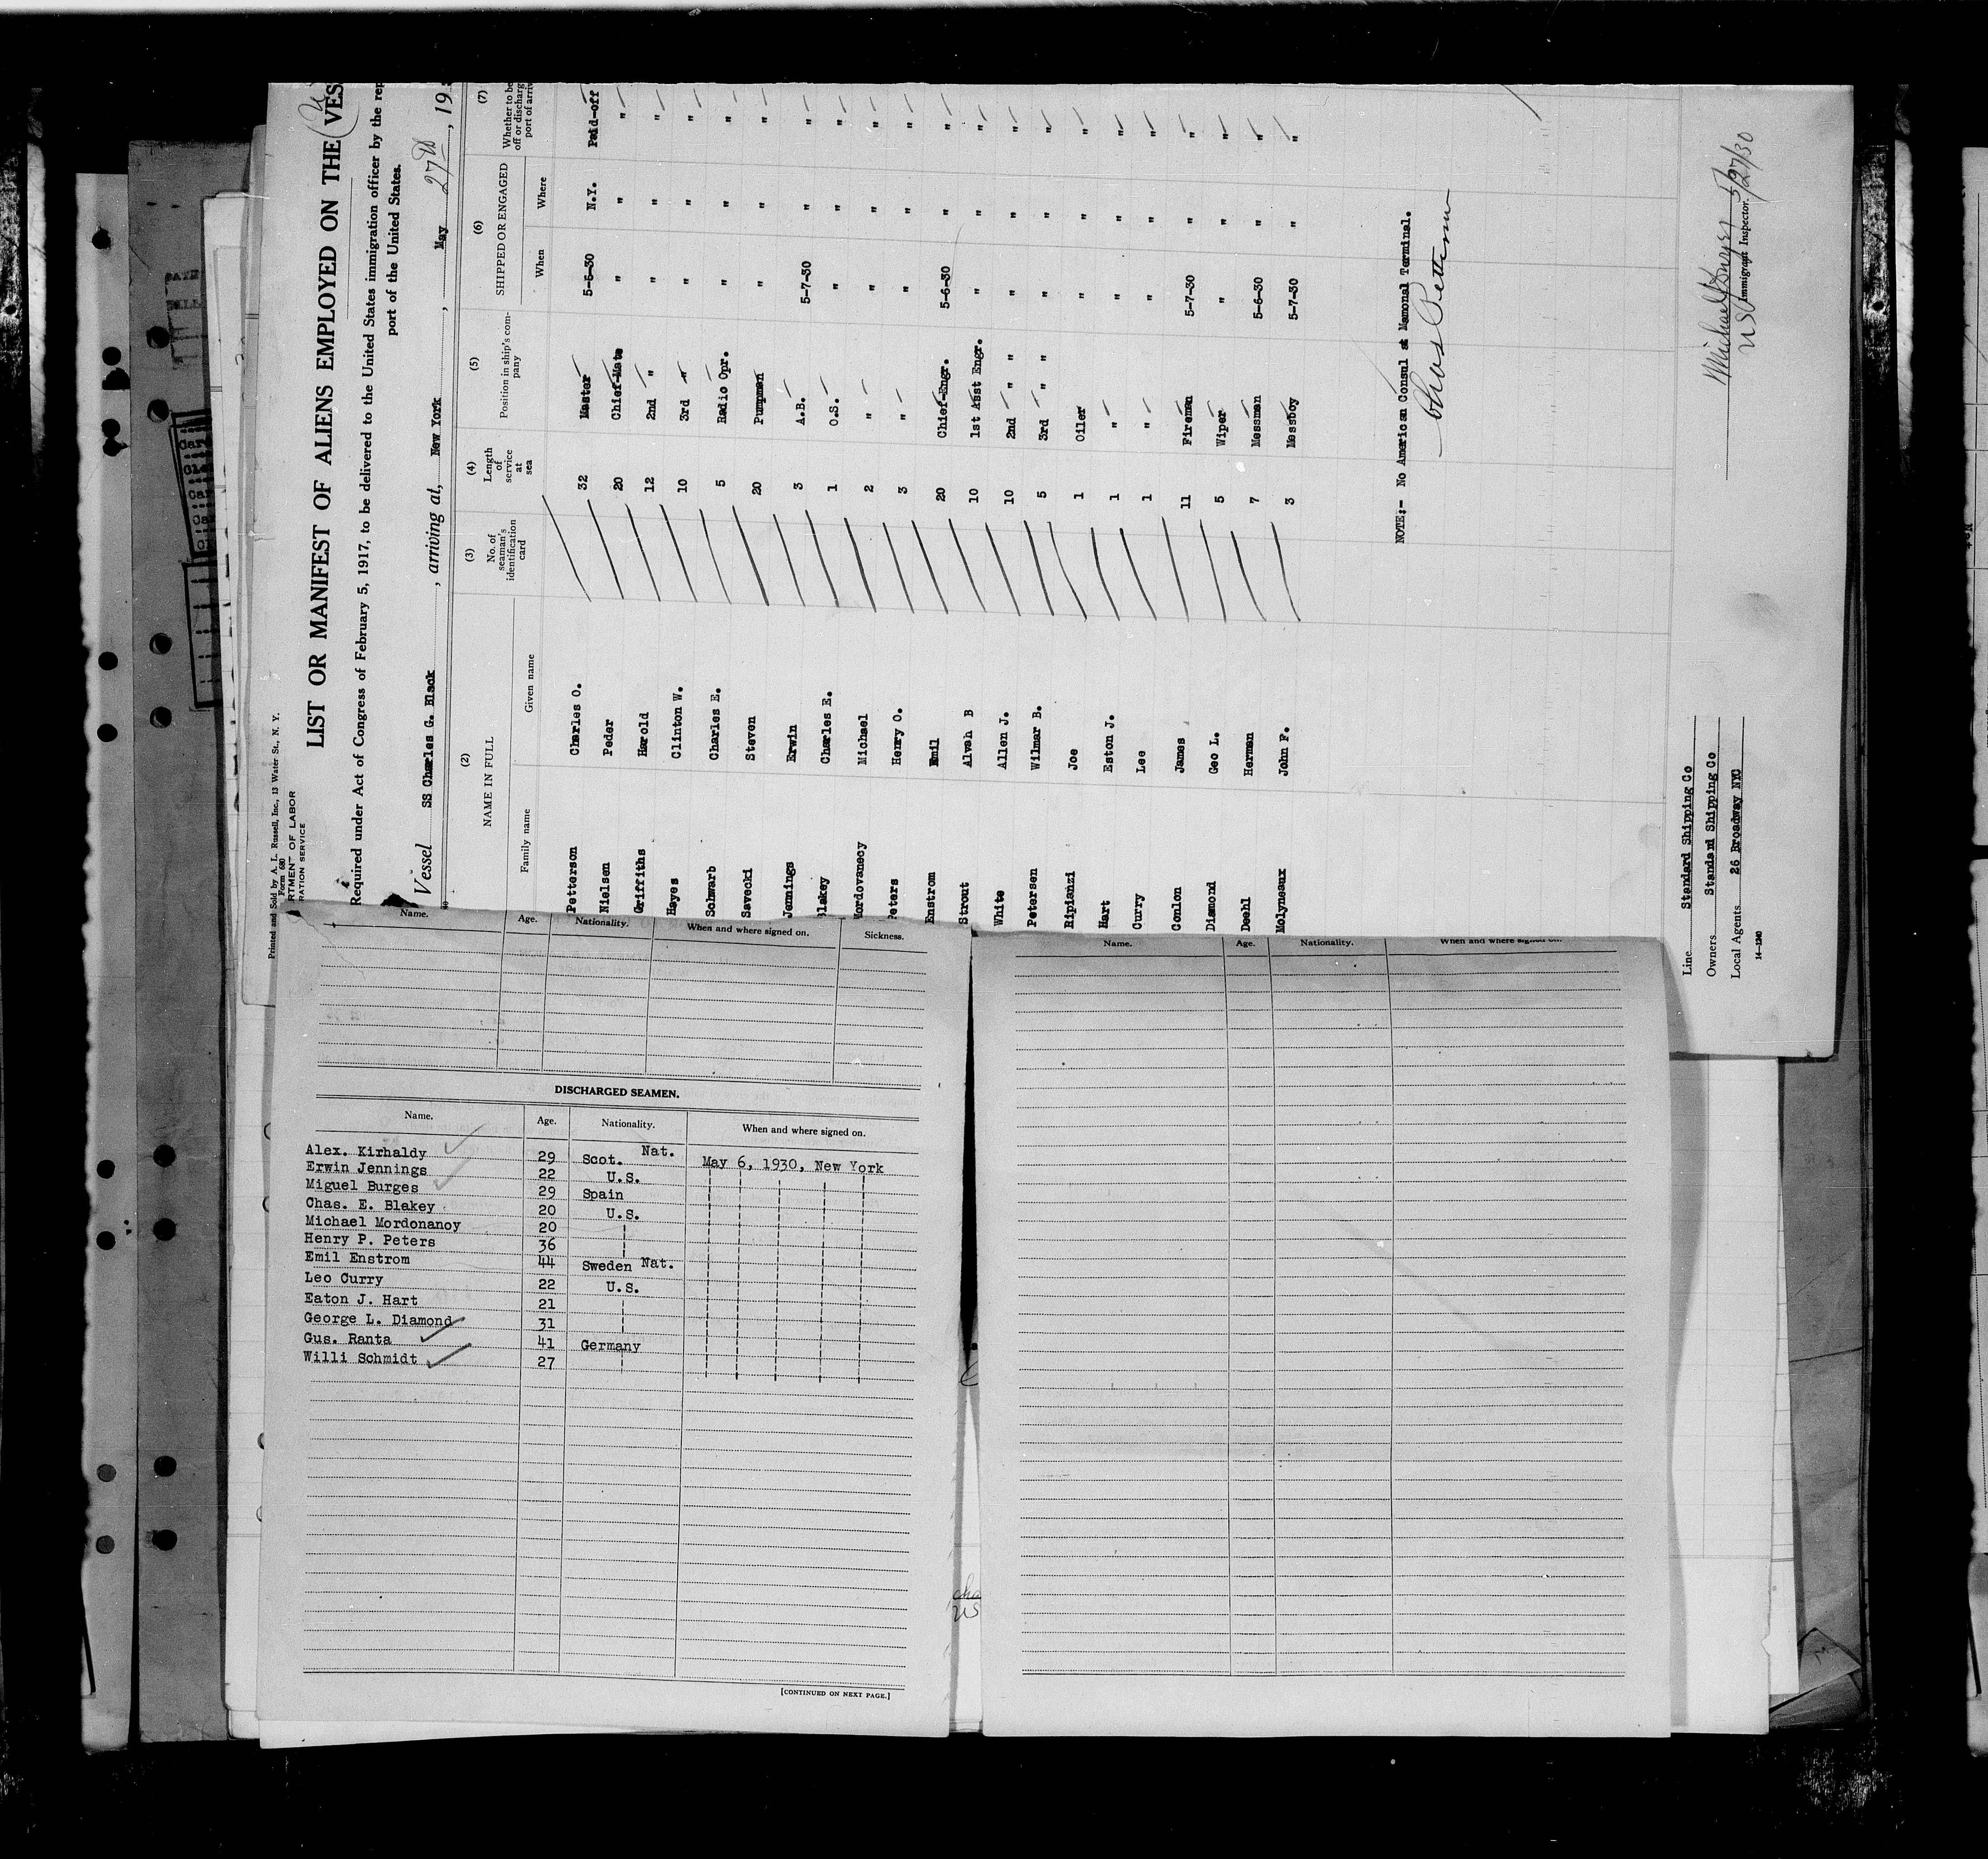 Printed and Sold by A. L. Russell, Inc., 13 Water St., N. Y.
Form 680
RTMENT OF LABOR
RATION SERVICE
LIST OR MANIFEST OF ALIENS EMPLOYED ON THE VES
Required under Act of Congress of February 5, 1917, to be delivered to the United States immigration officer by the rep
port of the United States.
Vessel SS Charles G. Black , arriving at, New York , May 27th , 19
(2) (3) (4) (5) (6) (7)
NAME IN FULL No. of seaman's identification card Length of service at sea Position in ship's company SHIPPED OR ENGAGED Whether to be
off or discharg
port of arriv
Family name Given name When Where
Petterson Charles O. 32 Master 5-6-30 N.Y. Paid-off
Nielsen Peder 20 Chief-Mate " " "
Griffiths Harold 12 2nd " " " "
Hayes Clinton W. 10 3rd " " " "
Schwarb Charles E. 5 Radio Opr. " " "
Savecki Steven 20 Pumpman " " "
Jennings Erwin 3 A.B. 5-7-30 " "
Blakey Charles E. 1 O.S. " " "
Mordovanecy Michael 2 " " " "
Peters Henry O. 3 " " " "
Enstrom Emil 20 Chief-Engr. 5-6-30 " "
Strout Alvah B 10 1st Asst Engr. " " "
White Allen J. 10 2nd " " " " "
Petersen Wilmar B. 5 3rd " " " " "
Ripianzi Joe 1 Oiler " " "
Hart Eston J. 1 " " " "
Curry Lee 1 " " " "
Conlon James 11 Fireman 5-7-30 " "
Diamond Geo L. 5 Wiper " " "
Deehl Herman 7 Messman 5-6-30 " "
Molyneaux John F. 3 Messboy 5-7-30 " "
NOTE:- No American Consul at Mamonal Terminal.
Chas O Petterson
Line Standard Shipping Co
Owners Standard Shipping Co
Local Agents 26 Broadway NYC
14—1240
5/27/30
Immigrant Inspector.
Name. Age. Nationality. When and where signed on. Sickness.
DISCHARGED SEAMEN.
Name. Age. Nationality. When and where signed on.
Alex. Kirhaldy 29 Scot. Nat. May 6, 1930, New York
Erwin Jennings 22 U.S.
Miguel Burges 29 Spain
Chas. E. Blakey 20 U.S.
Michael Mordonanoy 20
Henry P. Peters 36
Emil Enstrom 44 Sweden Nat.
Leo Curry 22 U.S.
Eaton J. Hart 21
George L. Diamond 31
Gus. Ranta 41 Germany
Willi Schmidt 27
[CONTINUED ON NEXT PAGE.]
Name. Age. Nationality. When and where signed on.